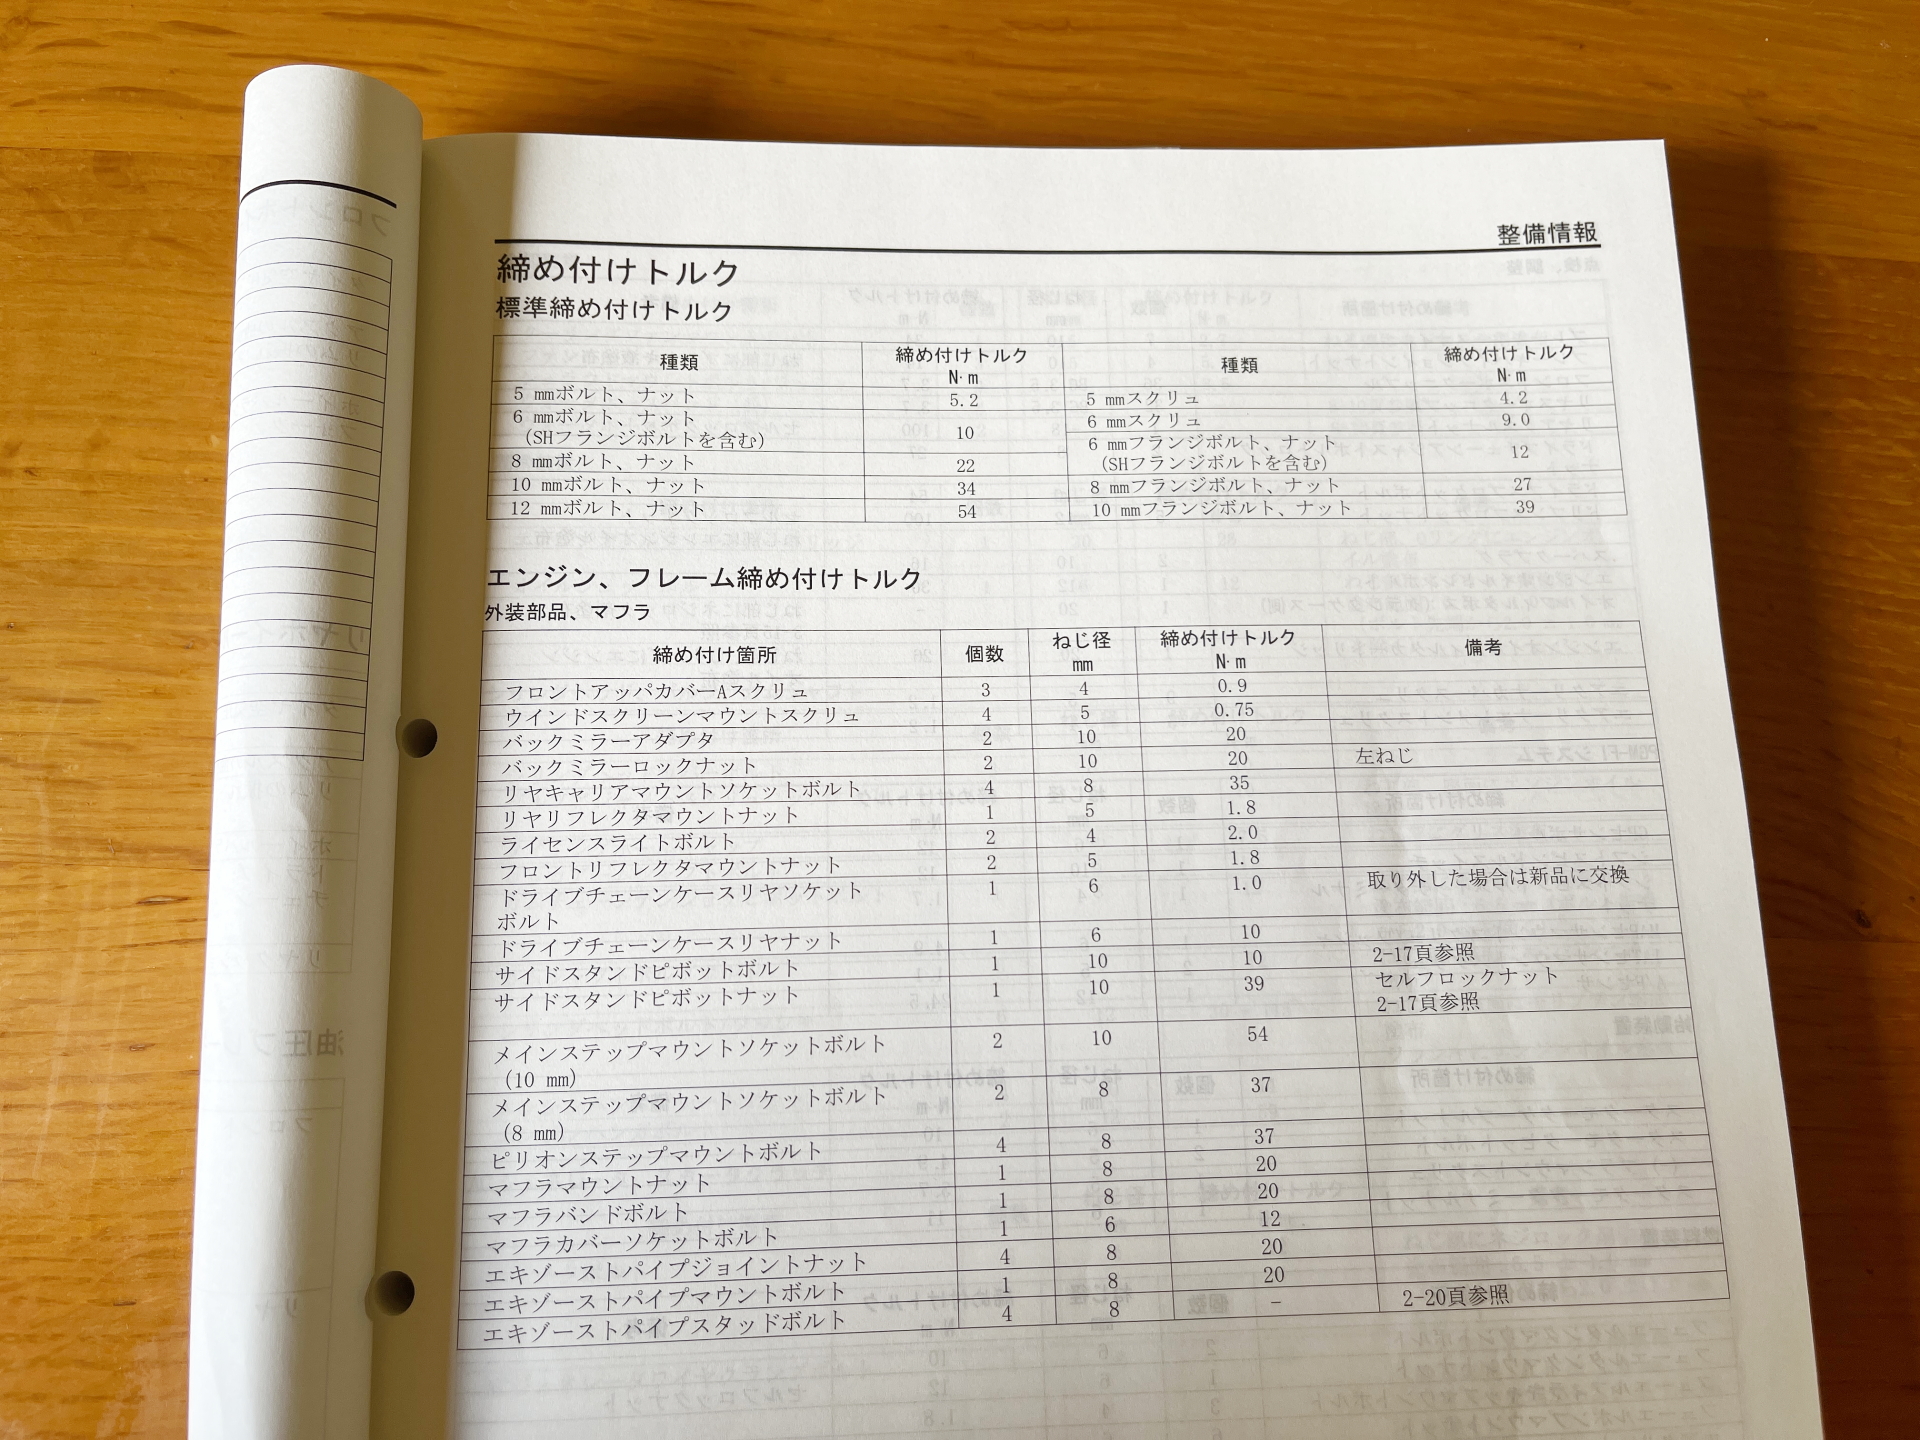 整備情報
締め付けトルク
標準締め付けトルク
種類 締め付けトルク N·m 種類 締め付けトルク N·m
5 mmボルト、ナット 5.2 5 mmスクリュ 4.2
6 mmボルト、ナット (SHフランジボルトを含む) 10 6 mmスクリュ 9.0
8 mmボルト、ナット 22 6 mmフランジボルト、ナット (SHフランジボルトを含む) 12
10 mmボルト、ナット 34 8 mmフランジボルト、ナット 27
12 mmボルト、ナット 54 10 mmフランジボルト、ナット 39
エンジン、フレーム締め付けトルク
外装部品、マフラ
締め付け箇所 個数 ねじ径 mm 締め付けトルク N·m 備考
フロントアッパカバーAスクリュ 3 4 0.9
ウインドスクリーンマウントスクリュ 4 5 0.75
バックミラーアダプタ 2 10 20
バックミラーロックナット 2 10 20 左ねじ
リヤキャリアマウントソケットボルト 4 8 35
リヤリフレクタマウントナット 1 5 1.8
ライセンスライトボルト 2 4 2.0
フロントリフレクタマウントナット 2 5 1.8
ドライブチェーンケースリヤソケット 1 6 1.0 取り外した場合は新品に交換
ボルト
ドライブチェーンケースリヤナット 1 6 10
サイドスタンドピボットボルト 1 10 10 2-17頁参照
サイドスタンドピボットナット 1 10 39 セルフロックナット
2-17頁参照
メインステップマウントソケットボルト 2 10 54
(10 mm)
メインステップマウントソケットボルト 2 8 37
(8 mm)
ピリオンステップマウントボルト 4 8 37
マフラマウントナット 1 8 20
マフラバンドボルト 1 8 20
マフラカバーソケットボルト 1 6 12
エキゾーストパイプジョイントナット 4 8 20
エキゾーストパイプマウントボルト 1 8 20
エキゾーストパイプスタッドボルト 4 8 - 2-20頁参照